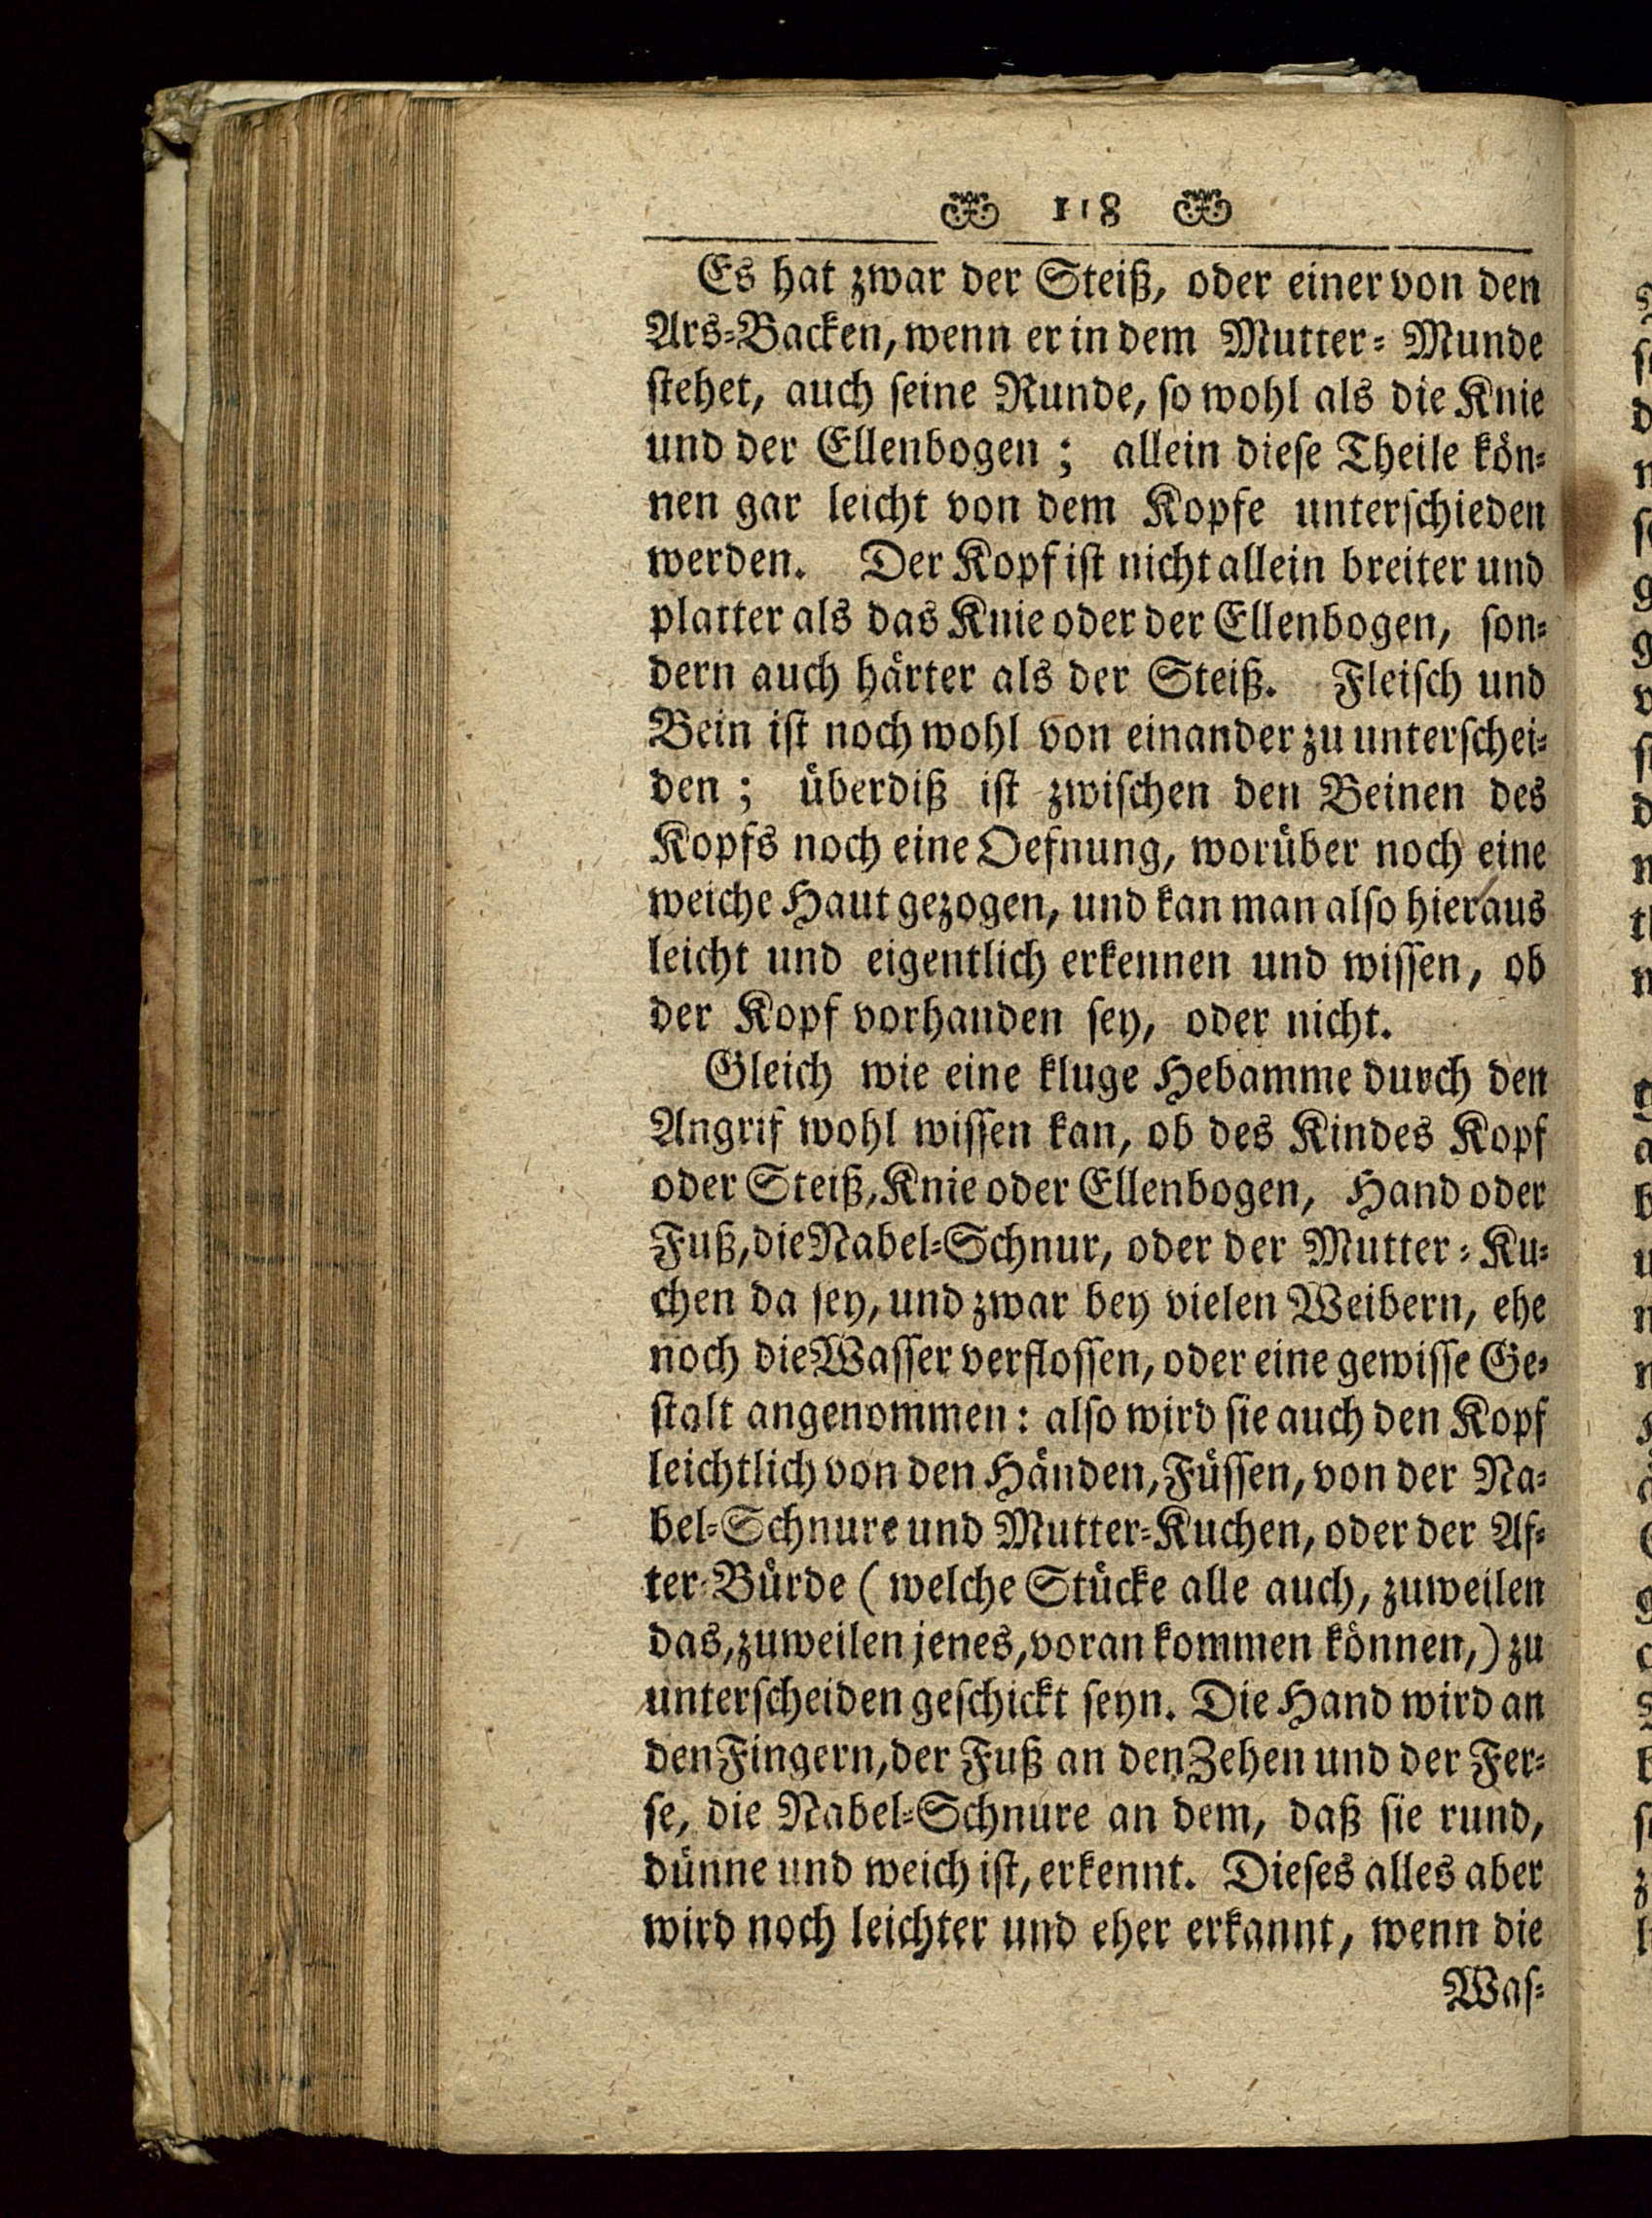 118
Es hat zwar der Steiß, oder einer von den
Ars-Backen, wenn er in dem Mutter-Munde
stehet, auch seine Runde, so wohl als die Knie
und der Ellenbogen; allein diese Theile kön-
nen gar leicht von dem Kopfe unterschieden
werden. Der Kopf ist nicht allein breiter und
platter als das Knie oder der Ellenbogen, son-
dern auch härter als der Steiß. Fleisch und
Bein ist noch wohl von einander zu unterschei-
den; überdiß ist zwischen den Beinen des
Kopfs noch eine Oefnung, worüber noch eine
weiche Haut gezogen, und kan man also hieraus
leicht und eigentlich erkennen und wissen, ob
der Kopf vorhanden sey, oder nicht.
Gleich wie eine kluge Hebamme durch den
Angrif wohl wissen kan, ob des Kindes Kopf
oder Steiß, Knie oder Ellenbogen, Hand oder
Fuß, die Nabel-Schnur, oder der Mutter-Ku-
chen da sey, und zwar bey vielen Weibern, ehe
noch die Wasser verflossen, oder eine gewisse Ge-
stalt angenommen: also wird sie auch den Kopf
leichtlich von den Händen, Füssen, von der Na-
bel-Schnure und Mutter-Kuchen, oder der Af-
ter-Bürde (welche Stücke alle auch, zuweilen
das, zuweilen jenes, voran kommen können,) zu
unterscheiden geschickt seyn. Die Hand wird an
den Fingern, der Fuß an den Zehen und der Fer-
se, die Nabel-Schnure an dem, daß sie rund,
dünne und weich ist, erkennt. Dieses alles aber
wird noch leichter und eher erkannt, wenn die
Was-